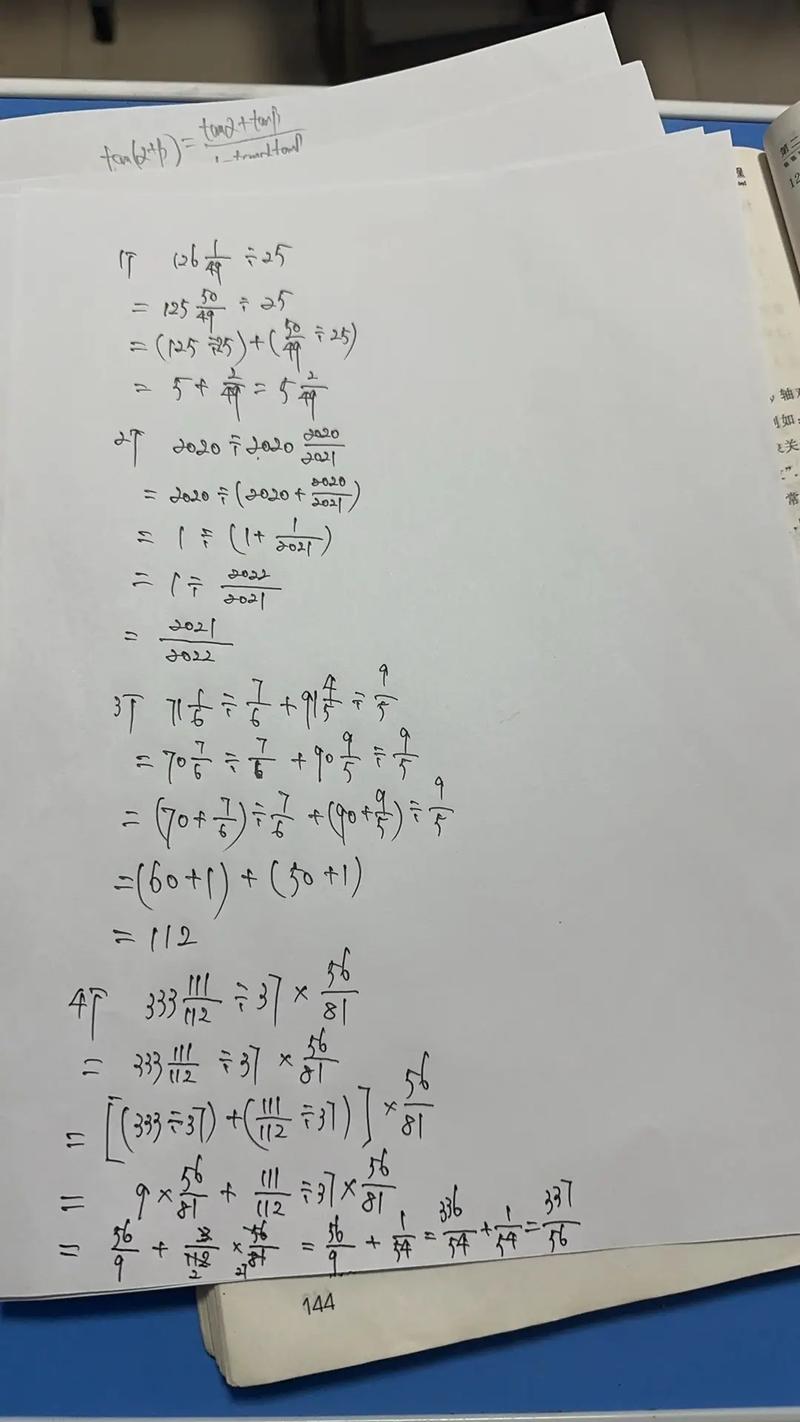 tan(α+β)=\frac{tanα+tanβ}{1-tanαtanβ}
1) 126\frac{1}{49}÷25
=125\frac{50}{49}÷25
=(125÷25)+(\frac{50}{49}÷25)
=5+\frac{2}{49}=5\frac{2}{49}
2) 2020÷2020\frac{2020}{2021}
=2020÷(2020+\frac{2020}{2021})
=1÷(1+\frac{1}{2021})
=1÷\frac{2022}{2021}
=\frac{2021}{2022}
3) 71\frac{1}{6}÷\frac{7}{6}+91\frac{4}{5}÷\frac{9}{5}
=70\frac{7}{6}÷\frac{7}{6}+90\frac{9}{5}÷\frac{9}{5}
=(70+\frac{7}{6})÷\frac{7}{6}+(90+\frac{9}{5})÷\frac{9}{5}
=(60+1)+(50+1)
=112
4) 333\frac{111}{112}÷37×\frac{56}{81}
=333\frac{111}{112}÷37×\frac{56}{81}
=[(333÷37)+(\frac{111}{112}÷37)]×\frac{56}{81}
=9×\frac{56}{81}+\frac{111}{112}÷37×\frac{56}{81}
=\frac{56}{9}+\frac{3}{112}×\frac{56}{81}=\frac{56}{9}+\frac{1}{54}=\frac{336}{54}+\frac{1}{54}=\frac{337}{56}
2 27
144
第二
12
轴对
例如:
关
常